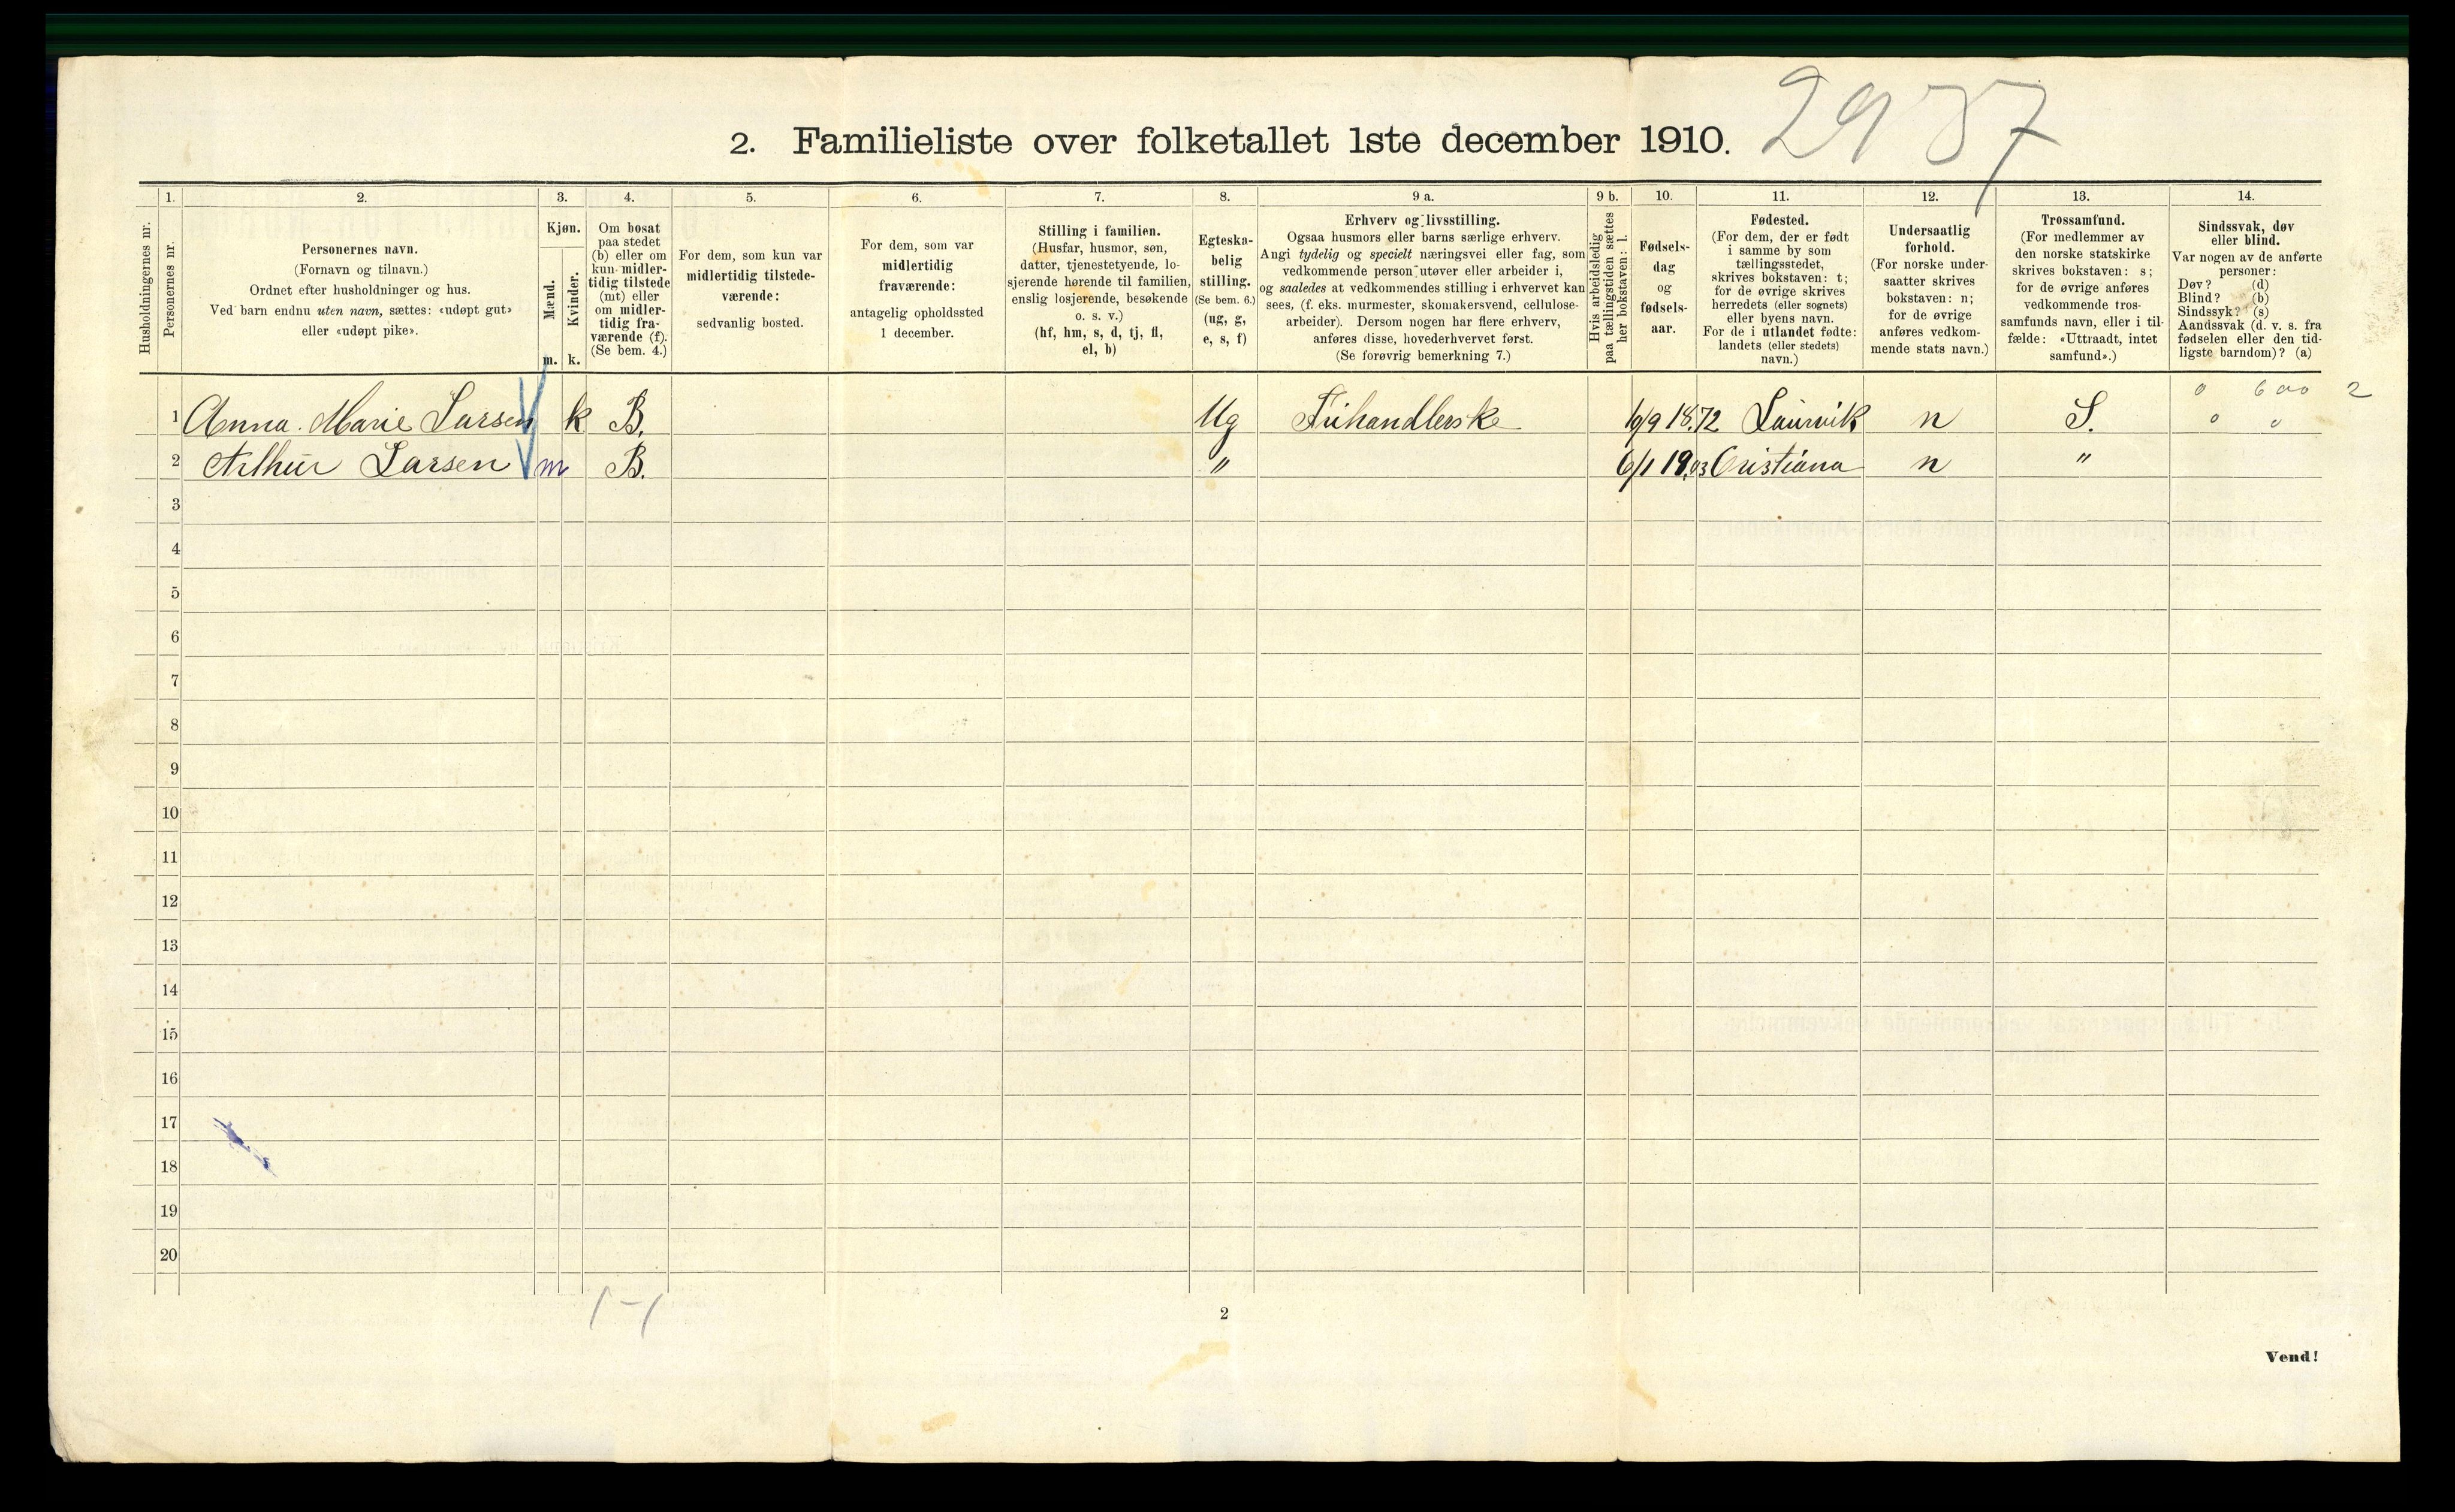 2. Familieliste over folketallet 1ste december 1910.
2937
Husholdningernes nr.
1.
Personernes nr.
2.
Personernes navn.
(Fornavn og tilnavn.)
Ordnet efter husholdninger og hus.
Ved barn endnu uten navn, sættes: «udøpt gut»
eller «udøpt pike».
3.
Kjøn.
Mænd.
m.
Kvinder.
k.
4.
Om bosat
paa stedet
(b) eller om
kun midler-
tidig tilstede
(mt) eller
om midler-
tidig fra-
værende (f).
(Se bem. 4.)
5.
For dem, som kun var
midlertidig tilstede-
værende:
sedvanlig bosted.
6.
For dem, som var
midlertidig
fraværende:
antagelig opholdssted
1 december.
7.
Stilling i familien.
(Husfar, husmor, søn,
datter, tjenestetyende, lo-
sjerende hørende til familien,
enslig losjerende, besøkende
o. s. v.)
(hf, hm, s, d, tj, fl,
el, b)
8.
Egteska-
belig
stilling.
(Se bem. 6.)
(ug, g,
e, s, f)
9 a.
Erhverv og livsstilling.
Ogsaa husmors eller barns særlige erhverv.
Angi tydelig og specielt næringsvei eller fag, som
vedkommende person utøver eller arbeider i,
og saaledes at vedkommendes stilling i erhvervet kan
sees, (f. eks. murmester, skomakersvend, cellulose-
arbeider). Dersom nogen har flere erhverv,
anføres disse, hovederhvervet først.
(Se forøvrig bemerkning 7.)
9 b.
Hvis arbeidsledig
paa tællingstiden sættes
her bokstaven: l.
10.
Fødsels-
dag
og
fødsels-
aar.
11.
Fødested.
(For dem, der er født
i samme by som
tællingsstedet,
skrives bokstaven: t;
for de øvrige skrives
herredets (eller sognets)
eller byens navn.
For de i utlandet fødte:
landets (eller stedets)
navn.)
12.
Undersaatlig
forhold.
(For norske under-
saatter skrives
bokstaven: n;
for de øvrige
anføres vedkom-
mende stats navn.)
13.
Trossamfund.
(For medlemmer av
den norske statskirke
skrives bokstaven: s;
for de øvrige anføres
vedkommende tros-
samfunds navn, eller i til-
fælde: «Uttraadt, intet
samfund».)
14.
Sindssvak, døv
eller blind.
Var nogen av de anførte
personer:
Døv? (d)
Blind? (b)
Sindssyk? (s)
Aandssvak (d. v. s. fra
fødselen eller den tid-
ligste barndom)? (a)
0 600 2
1 Anna Marie Larsen k B. Ug Frihandlerske 10/9 1872 Laurvik n S. 0 0
2 Arthur Larsen m B. " 6/1 1903 Cristiana n "
3
4
5
6
7
8
9
10
11
12
13
14
15
16
17
18
19
20
1-1
2
Vend!